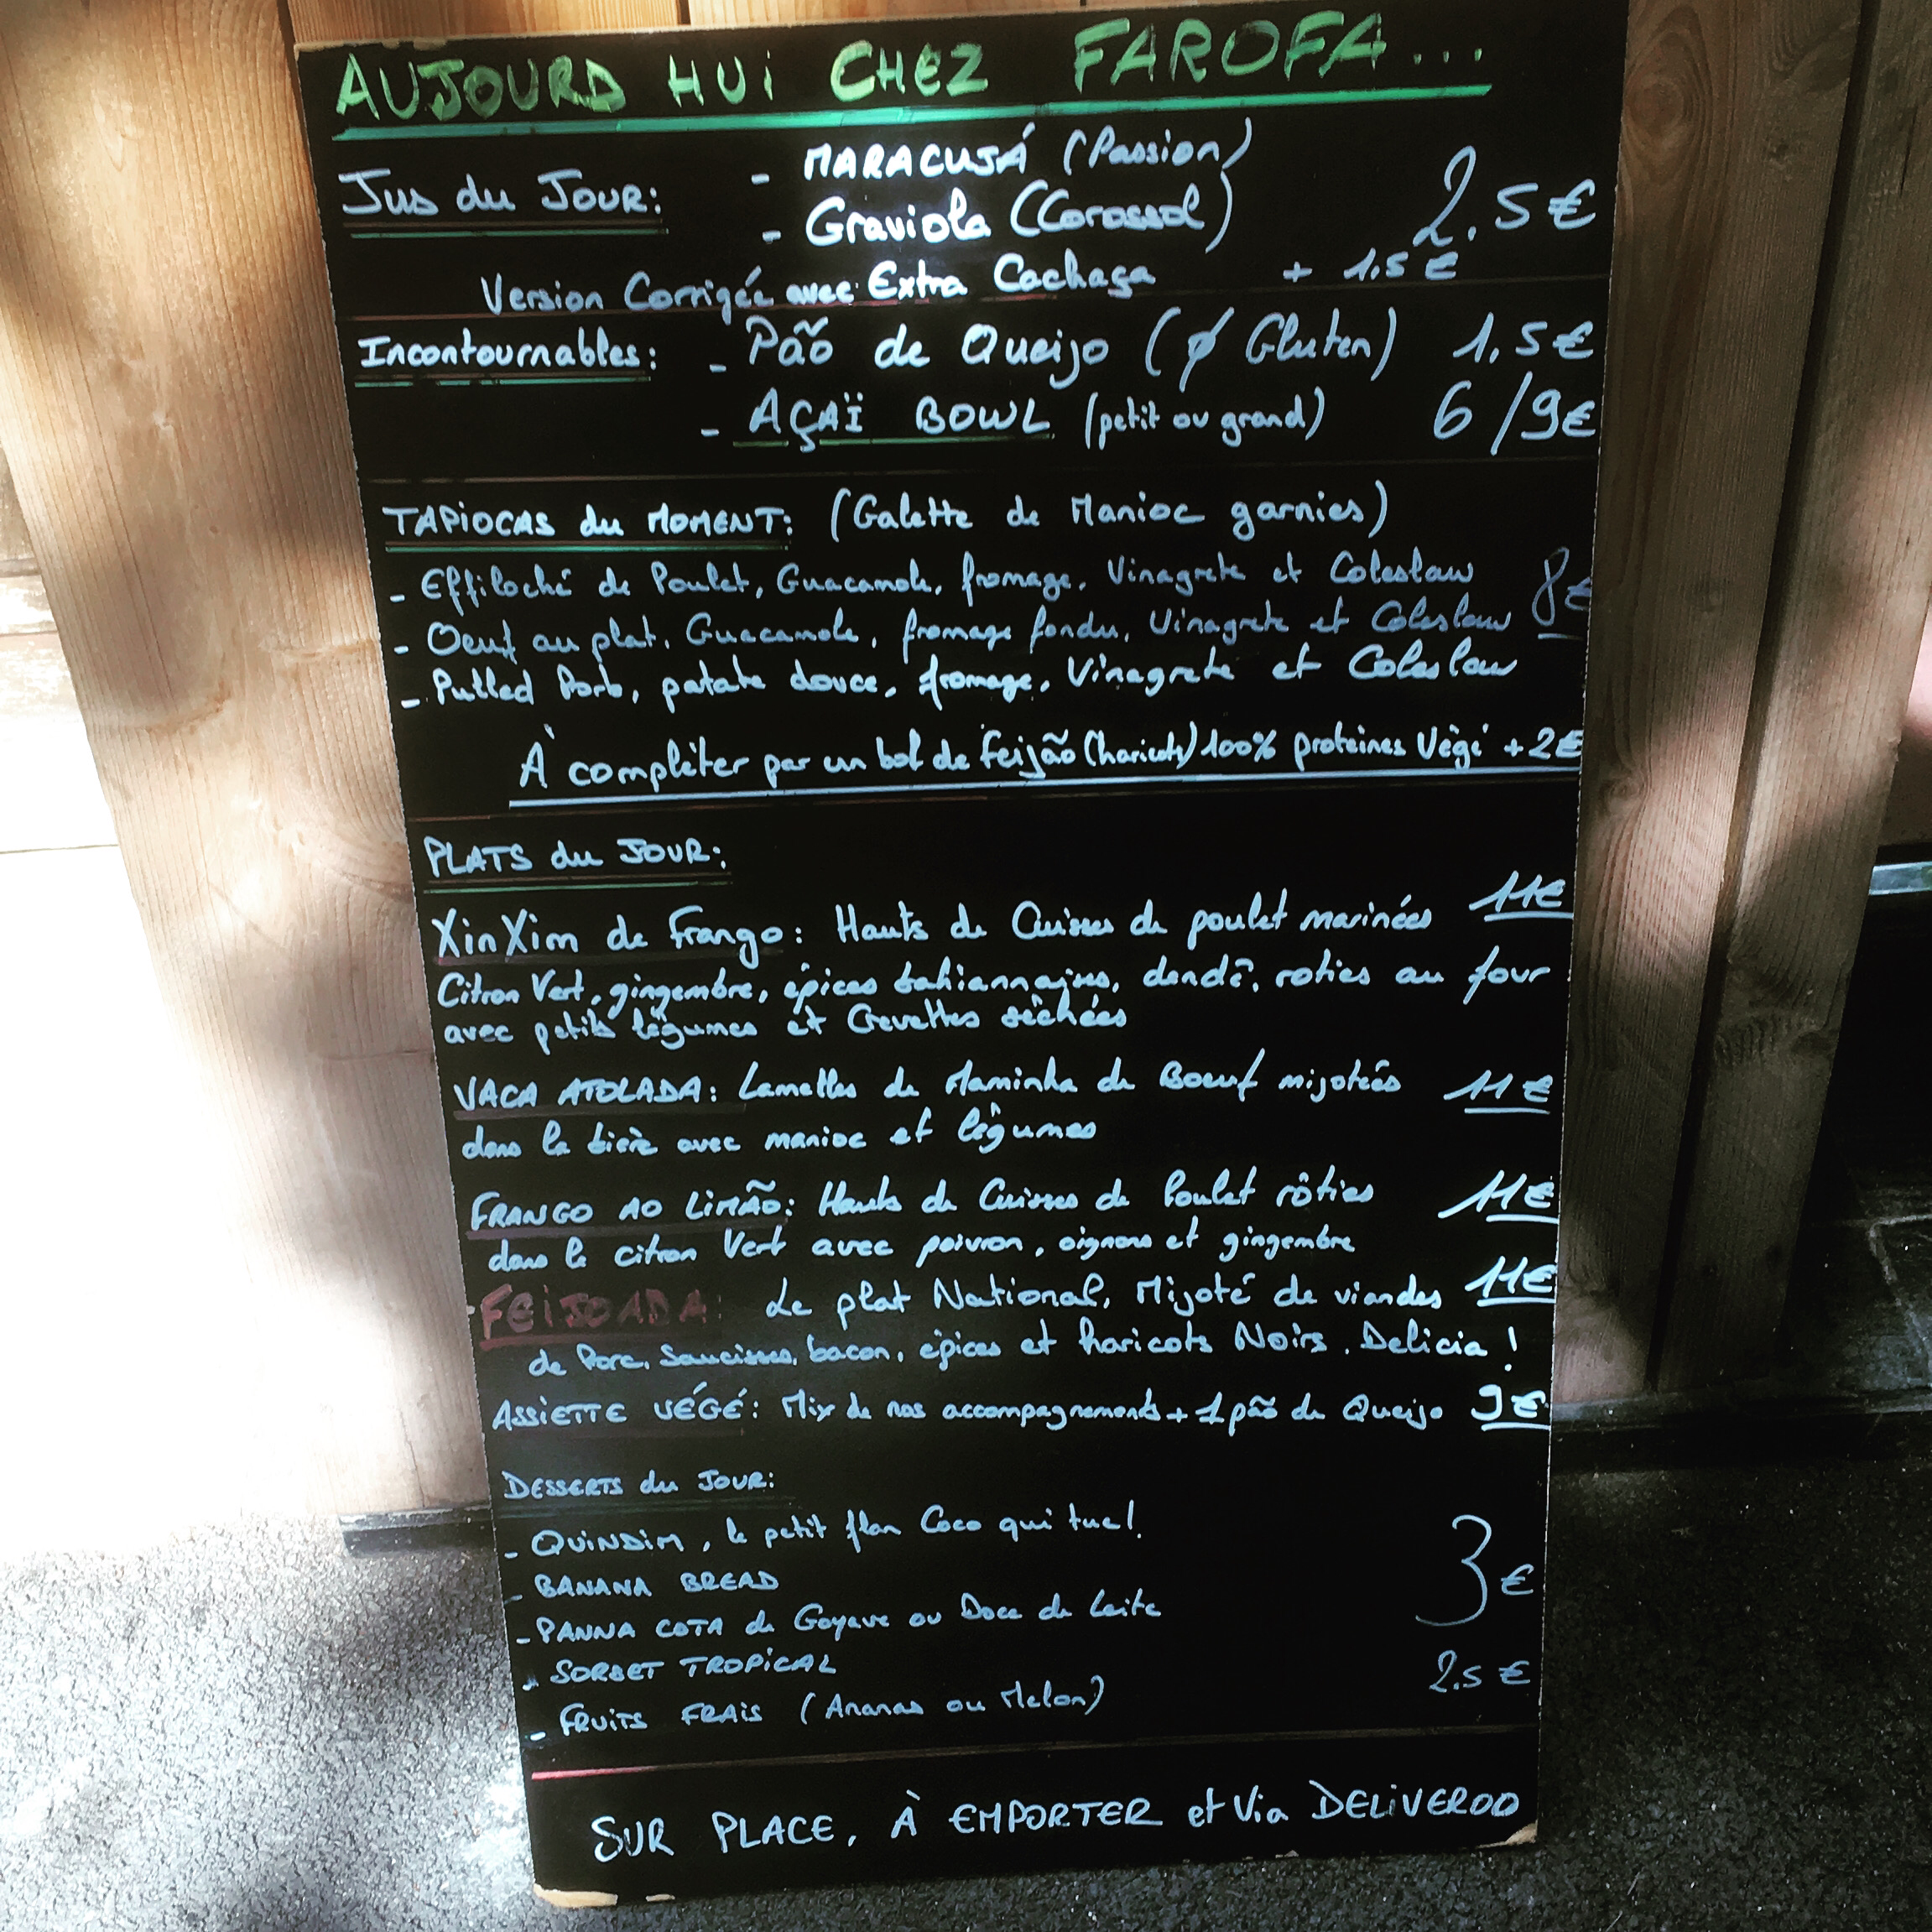 AUJOURD HUi CHEZ FAROFA...
Jus du Jour: - MARACUJÁ (Passion) 2.5€
- Graviola (Corossol)
Version Corrigée avec Extra Cachaça + 1.5€
Incontournables: - Pão de Queijo (∅ Gluten) 1,5€
- AÇAÏ BOWL (petit ou grand) 6/9€
TAPiOCAS du MOMENT: (Galette de Manioc garnies)
- Effiloché de Poulet, Guacamole, fromage, Vinagrete et Coleslaw 8€
- Oeuf au plat, Guacamole, fromage fondu, Vinagrete et Coleslaw
- Pulled Pork, patate douce, fromage, Vinagrete et Coleslaw
À complèter par un bol de Feijão (haricots) 100% proteines Végé + 2€
PLATS du JOUR:
XinXim de Frango: Hauts de Cuisses de poulet marinées 11€
Citron Vert, gingembre, épices bahiannaises, dendê, roties au four
avec petits légumes et Crevettes séchées
VACA ATOLADA: Lamelles de Maminha de Boeuf mijotées 11€
dans la bière avec manioc et légumes
FRANGO AO LiMÃO: Hauts de Cuisses de Poulet rôties 11€
dans le citron Vert avec poivron, oignons et gingembre
FEiJOADA: Le plat National, Mijoté de viandes 11€
de Porc, Saucisses, bacon, épices et haricots Noirs. Delicia!
ASSiETTE VÉGÉ: Mix de nos accompagnements + 1 pão de Queijo 9€
DESSERTS du JOUR:
- QUiNDiM, le petit flan Coco qui tue!
- BANANA BREAD 3€
- PANNA COTA de Goyave ou Doce de Leite
- SORBET TROPiCAL 2.5€
- FRUiTS FRAiS (Ananas ou Melon)
SUR PLACE, À EMPORTER et Via DELiVEROO